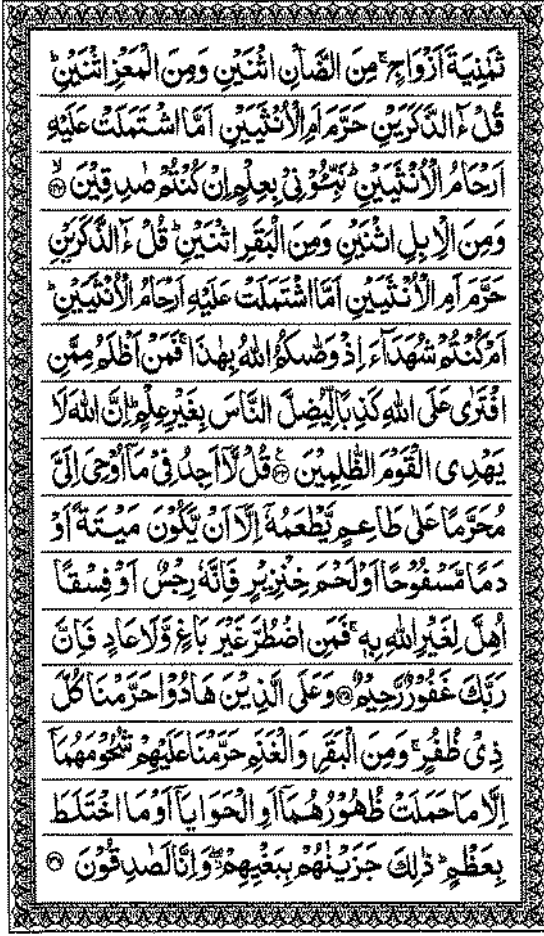 ثَمٰنِيَةَ اَزْوَاجٍ ۚ مِنَ الضَّاْنِ اثْنَيْنِ وَمِنَ الْمَعْزِ اثْنَيْنِ ؕ
قُلْ ءٰٓالذَّكَرَيْنِ حَرَّمَ اَمِ الْاُنْثَيَيْنِ اَمَّا اشْتَمَلَتْ عَلَيْهِ
اَرْحَامُ الْاُنْثَيَيْنِ ؕ نَبِّـُٔوْنِيْ بِعِلْمٍ اِنْ كُنْتُمْ صٰدِقِيْنَ ۙ۝۱۴۳
وَمِنَ الْاِبِلِ اثْنَيْنِ وَمِنَ الْبَقَرِ اثْنَيْنِ ؕ قُلْ ءٰٓالذَّكَرَيْنِ
حَرَّمَ اَمِ الْاُنْثَيَيْنِ اَمَّا اشْتَمَلَتْ عَلَيْهِ اَرْحَامُ الْاُنْثَيَيْنِ ؕ
اَمْ كُنْتُمْ شُهَدَآءَ اِذْ وَصّٰىكُمُ اللّٰهُ بِهٰذَا ۚ فَمَنْ اَظْلَمُ مِمَّنِ
افْتَرٰى عَلَى اللّٰهِ كَذِبًا لِّيُضِلَّ النَّاسَ بِغَيْرِ عِلْمٍ ؕ اِنَّ اللّٰهَ لَا
يَهْدِى الْقَوْمَ الظّٰلِمِيْنَ ۝۱۴۴ قُلْ لَّاۤ اَجِدُ فِيْ مَاۤ اُوْحِيَ اِلَيَّ
مُحَرَّمًا عَلٰى طَاعِمٍ يَّطْعَمُهٗۤ اِلَّاۤ اَنْ يَّكُوْنَ مَيْتَةً اَوْ
دَمًا مَّسْفُوْحًا اَوْ لَحْمَ خِنْزِيْرٍ فَاِنَّهٗ رِجْسٌ اَوْ فِسْقًا
اُهِلَّ لِغَيْرِ اللّٰهِ بِهٖ ۚ فَمَنِ اضْطُرَّ غَيْرَ بَاغٍ وَّلَا عَادٍ فَاِنَّ
رَبَّكَ غَفُوْرٌ رَّحِيْمٌ ۝۱۴۵ وَعَلَى الَّذِيْنَ هَادُوْا حَرَّمْنَا كُلَّ
ذِيْ ظُفُرٍ ۚ وَمِنَ الْبَقَرِ وَالْغَنَمِ حَرَّمْنَا عَلَيْهِمْ شُحُوْمَهُمَاۤ
اِلَّا مَا حَمَلَتْ ظُهُوْرُهُمَاۤ اَوِ الْحَوَايَاۤ اَوْ مَا اخْتَلَطَ
بِعَظْمٍ ؕ ذٰلِكَ جَزَيْنٰهُمْ بِبَغْيِهِمْ ۖ وَاِنَّا لَصٰدِقُوْنَ ۝۱۴۶